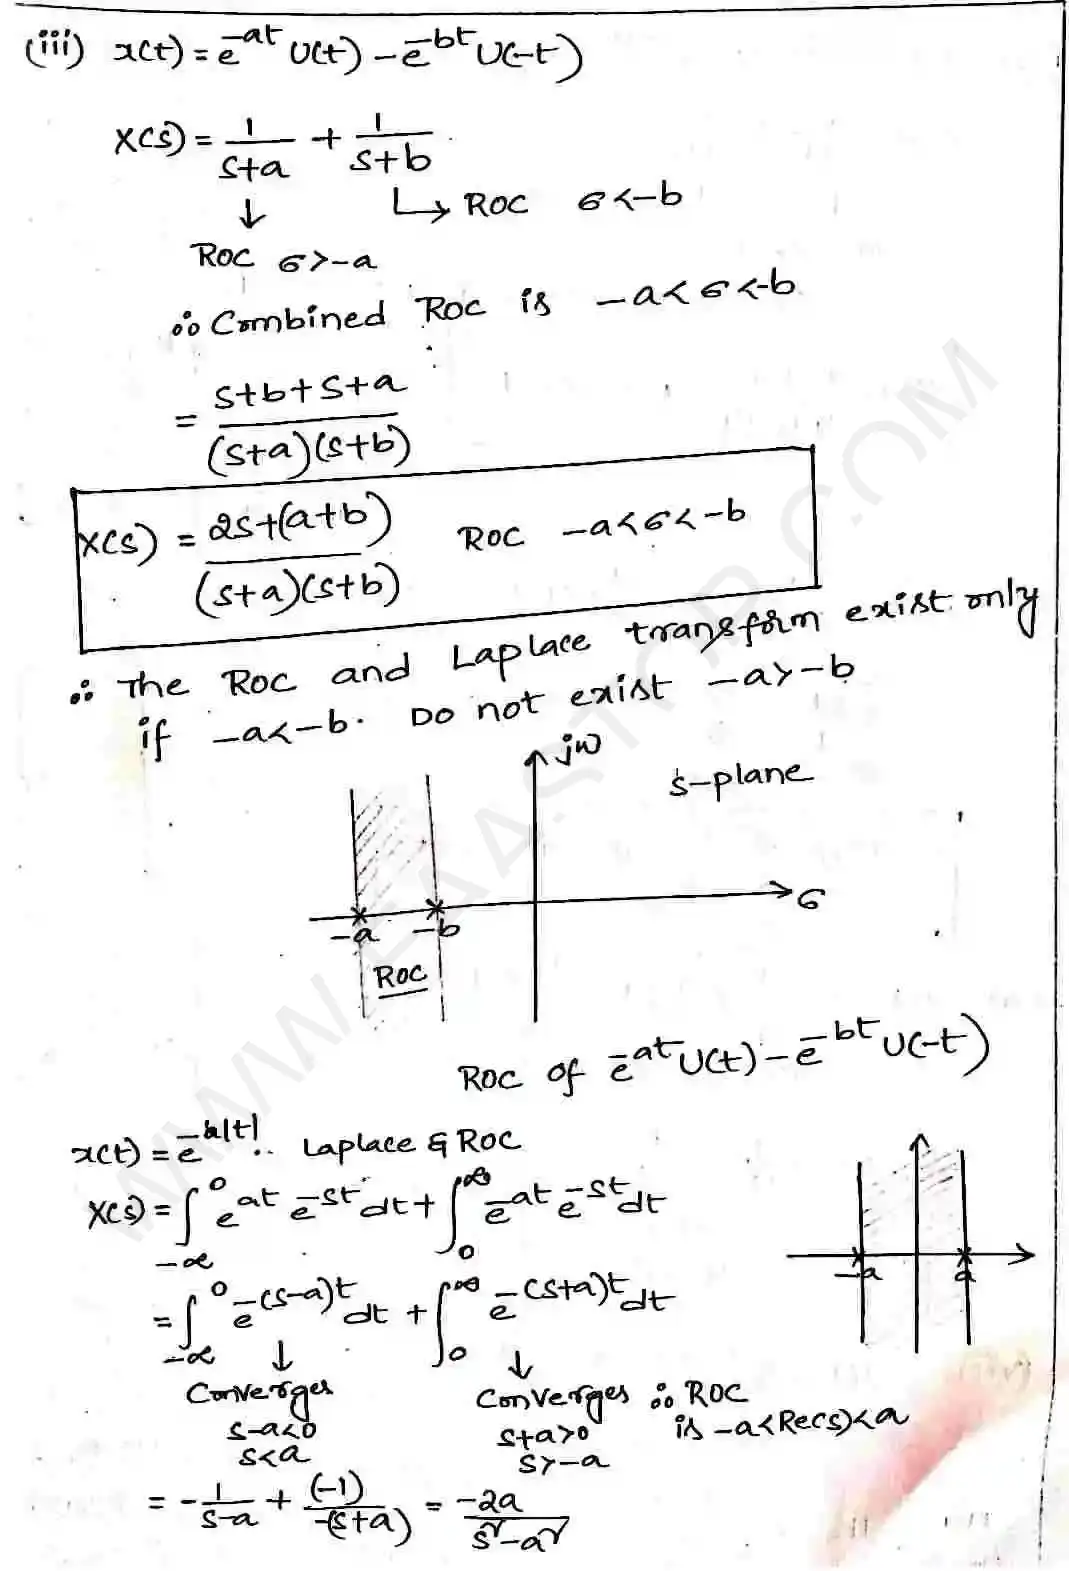 (iii) x(t) = e^-at U(t) - e^-bt U(-t)
X(s) = 1/(s+a) + 1/(s+b)
↓ ↳ ROC σ<-b
ROC σ>-a
∴ Combined ROC is -a<σ<-b
= (s+b+s+a)/((s+a)(s+b))
X(s) = (2s+(a+b))/((s+a)(s+b)) ROC -a<σ<-b
∴ The ROC and Laplace transform exist only
if -a<-b. Do not exist -a>-b
jω
s-plane
σ
-a -b
ROC
ROC of e^-at U(t) - e^-bt U(-t)
x(t) = e^-a|t| .. Laplace & ROC
X(s) = ∫_-∞^0 e^at e^-st dt + ∫_0^∞ e^-at e^-st dt
-a a
= ∫_-∞^0 e^-(s-a)t dt + ∫_0^∞ e^-(s+a)t dt
↓ ↓
Converges Converges ∴ ROC
s-a<0 s+a>0 is -a<Re(s)<a
s<a s>-a
= -1/(s-a) + (-1)/(-(s+a)) = -2a/(s²-a²)